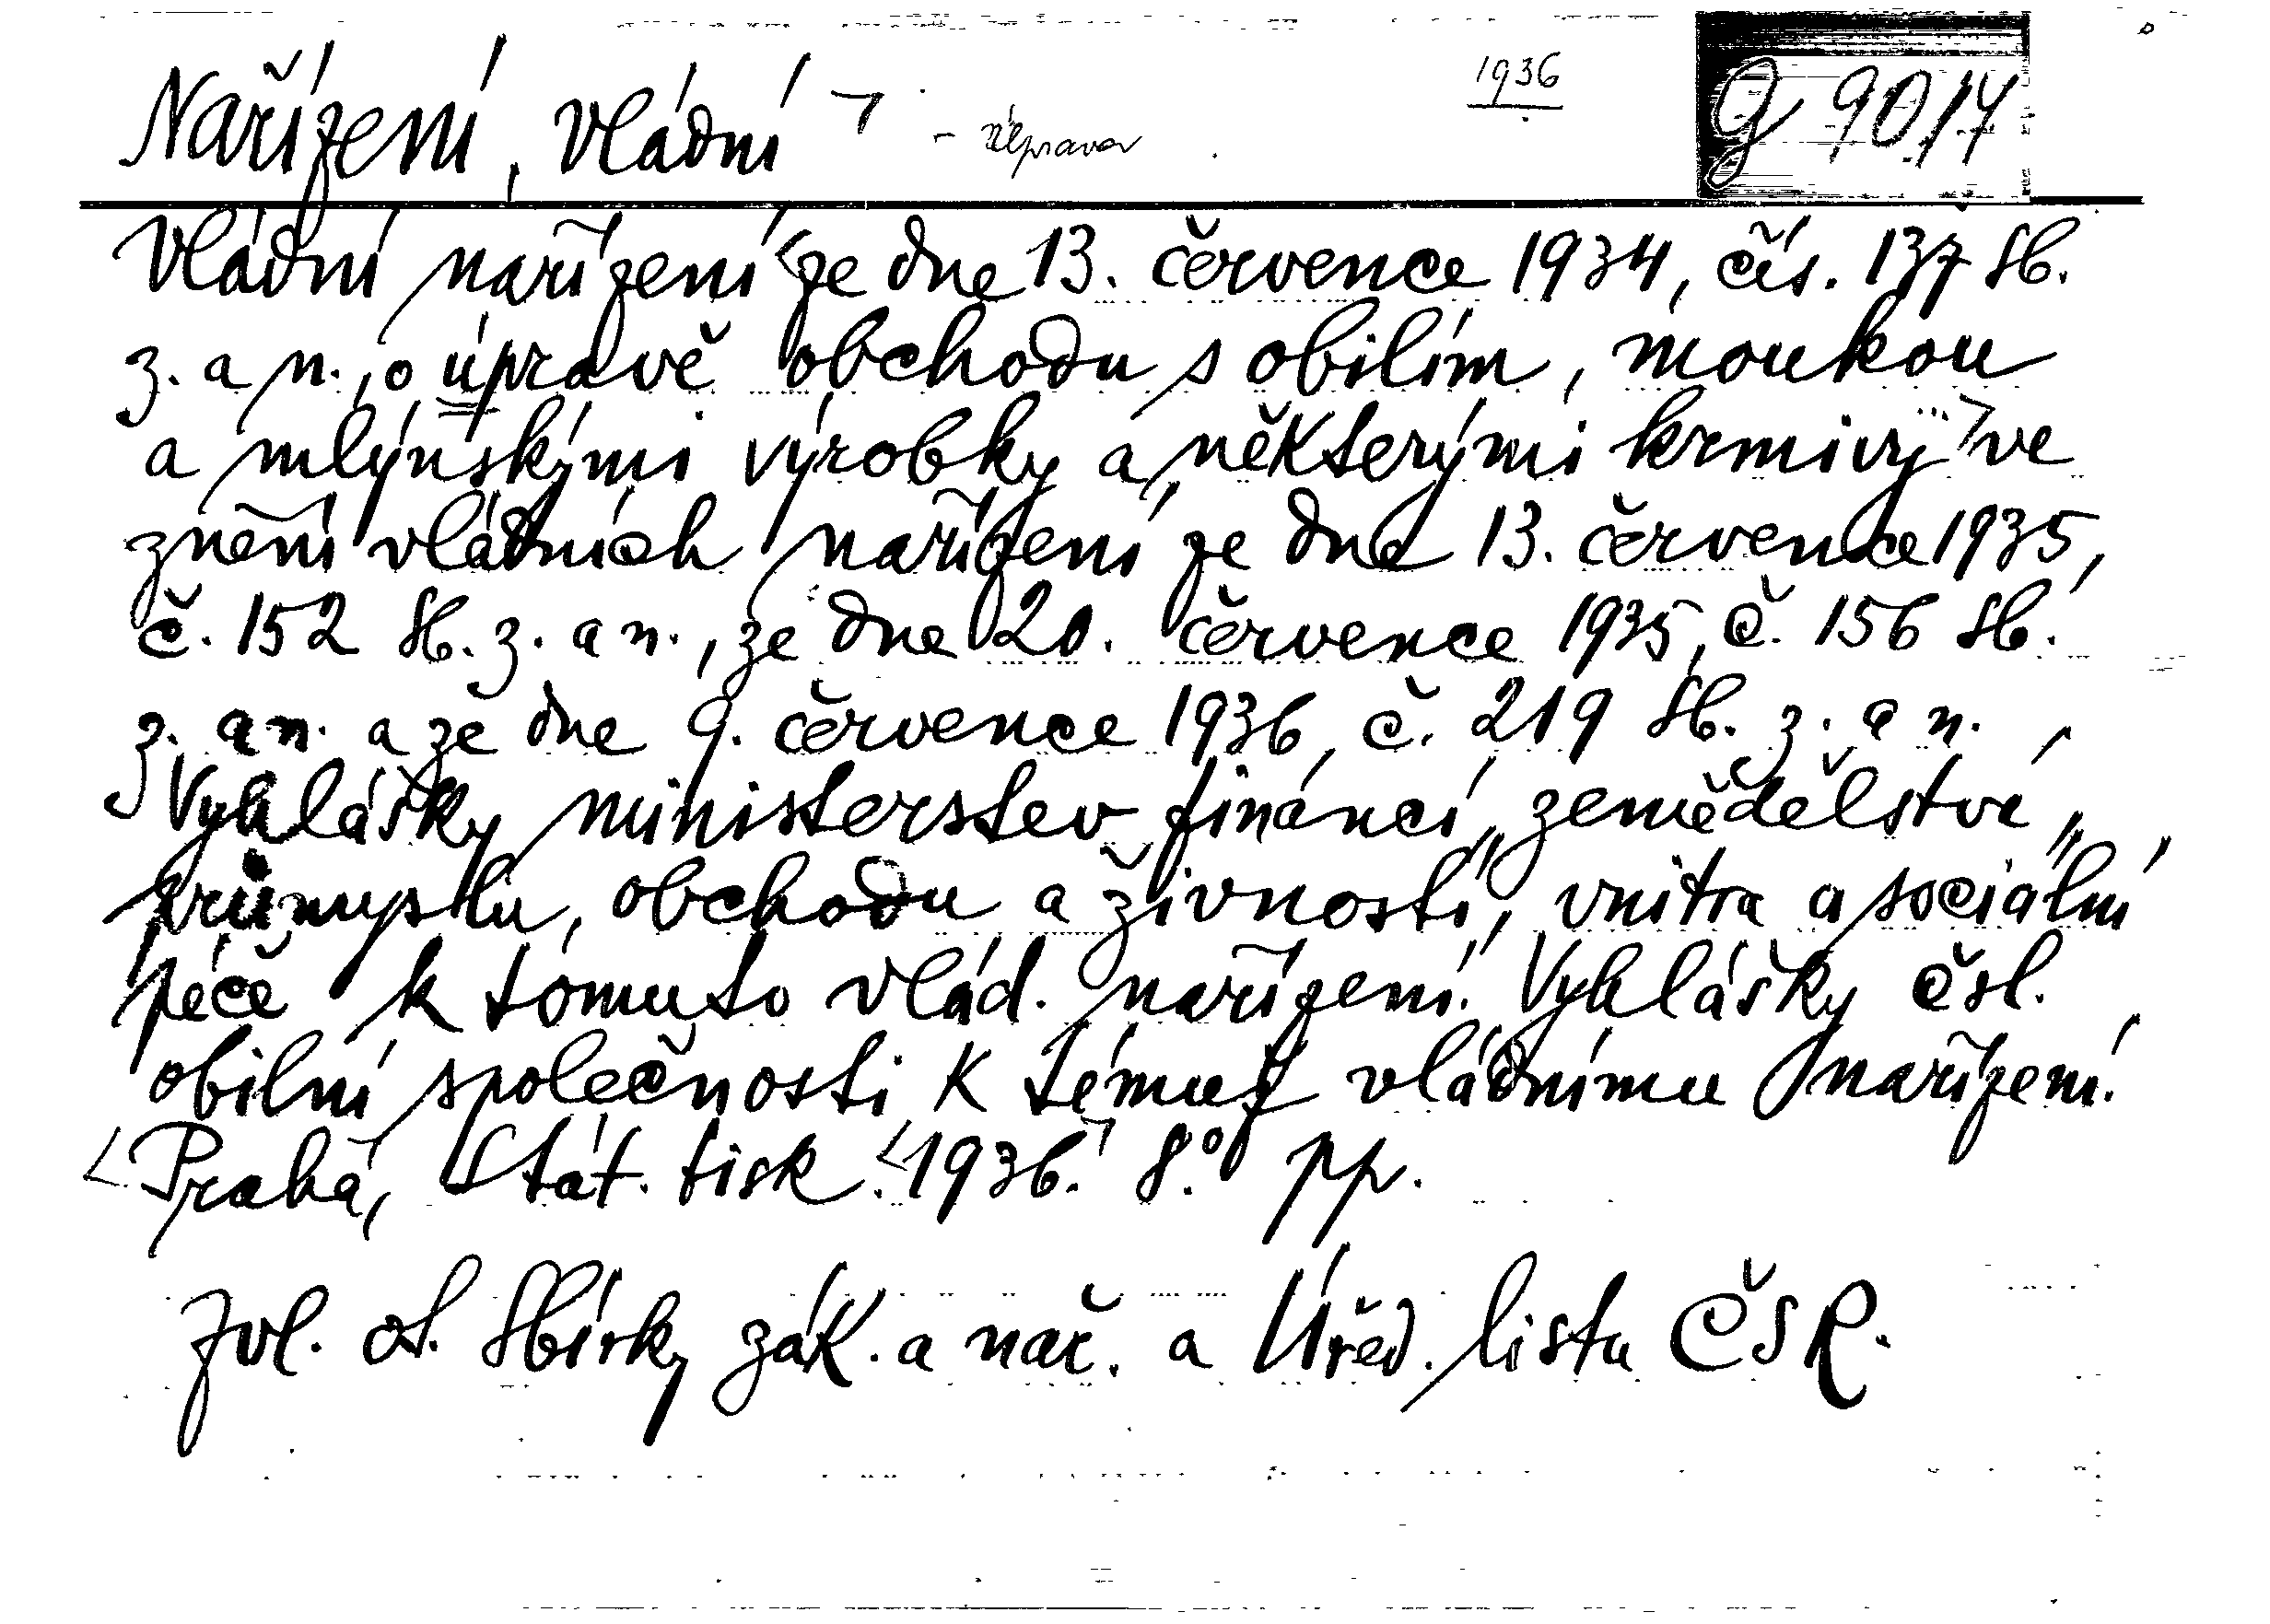 Nařízení, vládní - úprava 1936 g 90/4
Vládní nařízení ze dne 13. července 1934, čís. 137 Sb.
z. a n., o úpravě obchodu s obilím, moukou
a mlýnskými výrobky a některými krmivy ve
znění vládních nařízení ze dne 13. července 1935,
č. 152 Sb. z. a n., ze dne 20. července 1935, č. 156 Sb.
z. a n. a ze dne 9. července 1936, č. 219 Sb. z. a n.
Vyhlášky ministerstev financí, zemědělství,
průmyslu, obchodu a živností, vnitra a sociální
péče k tomuto vlád. nařízení. Vyhlášky čsl.
obilní společnosti k témuž vládnímu nařízení.
Praha, Stát. tisk. 1936. 8° pp.
Zvl. ot. Sbírky zák. a nař. a Úřed. listu ČSR.